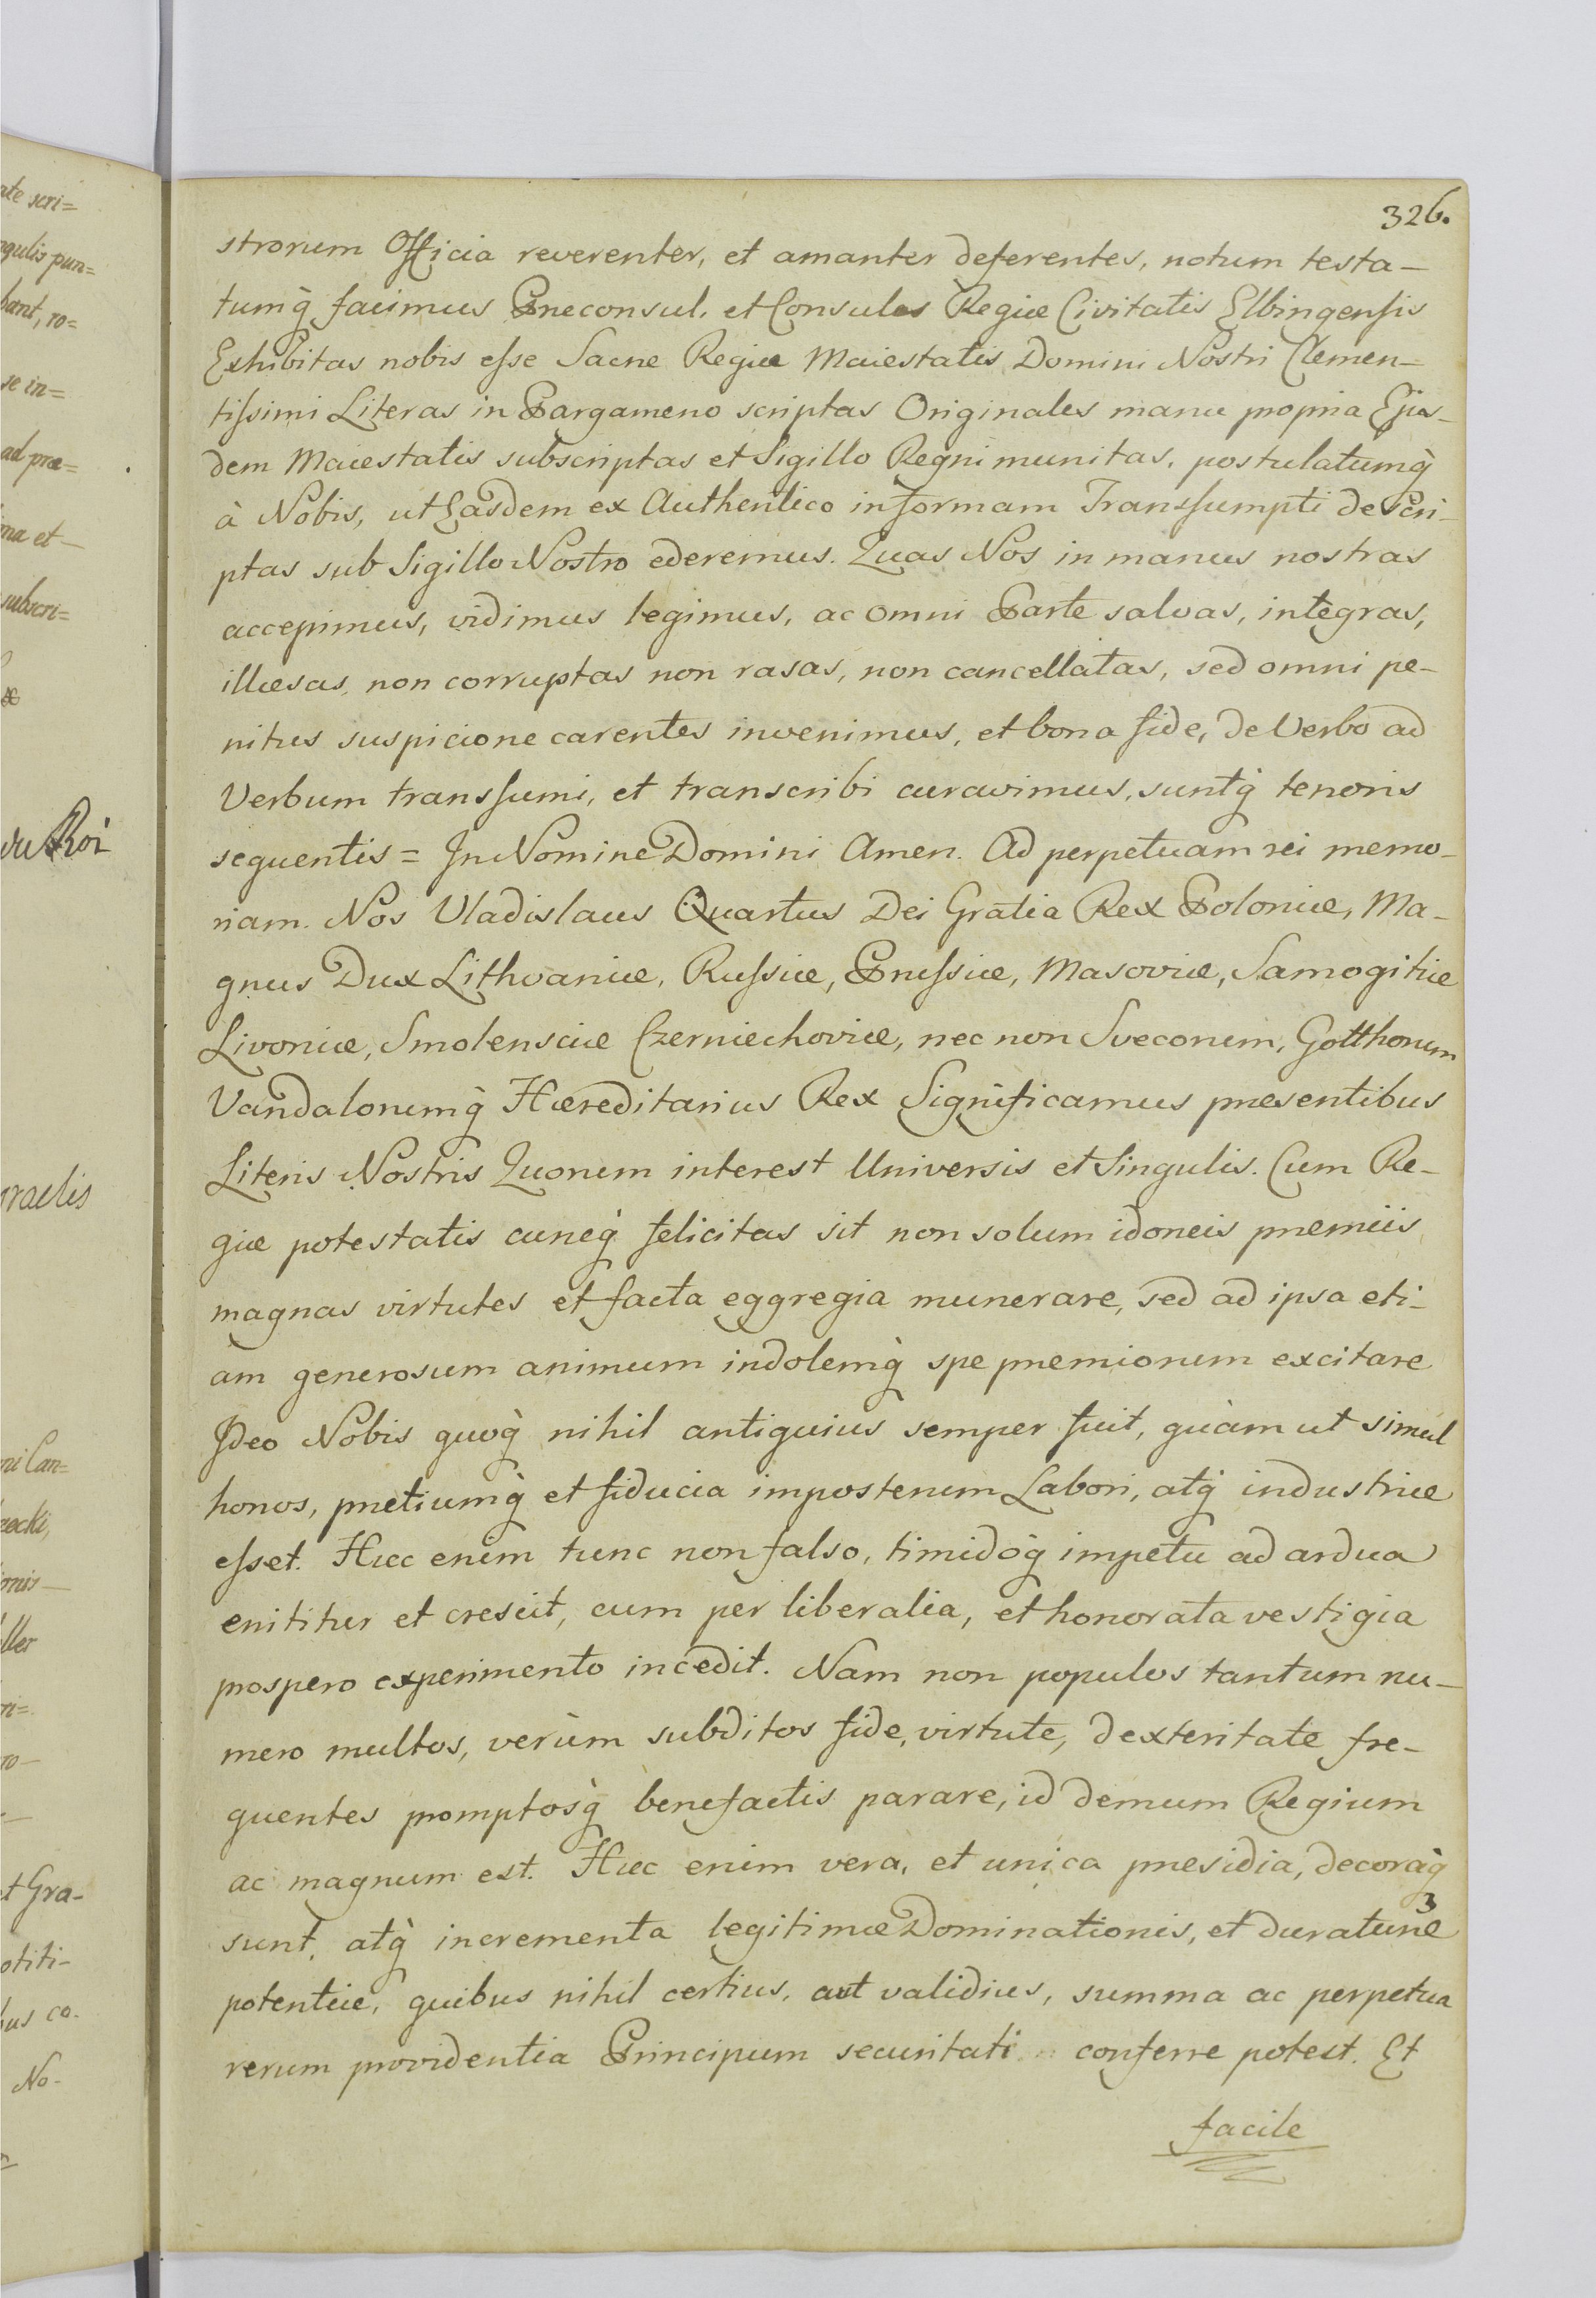 326.
strorum Officia reverenter, et amanter deferentes, notum testa-
tumq̀ facimus Præconsul, et Consules Regiæ Civitatis Elbingensis
Exhibitas nobis esse Sacræ Regiæ Maiestatis Domini Nostri Clemen-
tissimi Literas in Pargameno scriptas Originales manu propria Ejus-
dem Maiestatis subscriptas et Sigillo Regni munitas, postulatumq̀
à Nobis, ut Easdem ex Authentico in formam Transsumpti descri-
ptas sub Sigillo Nostro ederemus. Quas Nos in manus nostras
accepimus, vidimus legimus, ac omni Parte salvas, integras,
illæsas, non corruptas non rasas, non cancellatas, sed omni pe-
nitus suspicione carentes invenimus, et bona fide, de Verbo ad
Verbum transsumi, et transcribi curavimus, suntq̀ tenoris
sequentis = In Nomine Domini Amen. Ad perpetuam rei memo-
riam. Nos Vladislaus Quartus Dei Gratia Rex Poloniæ, Ma-
gnus Dux Lithvaniæ, Russiæ, Prussiæ, Masoviæ, Samogitiæ
Livoniæ, Smolensciæ Czerniechoviæ, nec non Svecorum, Gotthorum
Vandalorumq̀ Hæreditarius Rex Significamus præsentibus
Literis Nostris Quorum interest Universis et Singulis. Cum Re-
giæ potestatis curæq̀ felicitas sit non solum idoneis præmiis
magnas virtutes et facta eggregia munerare, sed ad ipsa eti-
am generosum animum indolemq̀ spe præmiorum excitare
Ideo Nobis quoq̀ nihil antiquius semper fuit, quàm ut simul
honos, pretiumq̀ et fiducia imposterum Labori, atq̀ industriæ
esset. Hæc enim tunc non falso, timidoq̀ impetu ad ardua
enititur et crescit, cum per liberalia, et honorata vestigia
prospero experimento incedit. Nam non populos tantum nu-
mero multos, verùm subditos fide, virtute, dexteritate fre-
quentes promptosq̀ benefactis parare, id demum Regium
ac magnum est. Hæc enim vera, et unica præsidia, decoraq̀
3
sunt, atq̀ incrementa legitimæ Dominationis, et duraturæ
potentiæ, quibus nihil certius, aut validius, summa ac perpetua
rerum providentia Principum securitati conferre potest. Et
facile